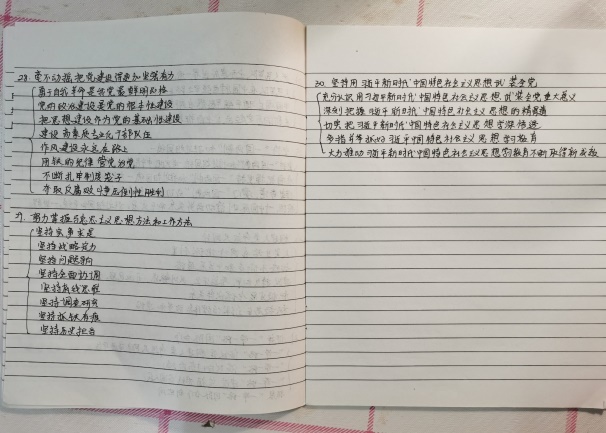 28. 毫不动摇把党建设得更加坚强有力
勇于自我革命是我党最鲜明品格
党的政治建设是党的根本性建设
把思想建设作为党的基础性建设
建设高素质专业化干部队伍
作风建设永远在路上
用铁的纪律管党治党
不断扎牢制度笼子
夺取反腐败斗争压倒性胜利
29. 努力掌握马克思主义思想方法和工作方法
坚持实事求是
坚持战略定力
坚持问题导向
坚持全面协调
坚持底线思维
坚持调查研究
坚持抓铁有痕
坚持历史担当
30. 坚持用习近平新时代中国特色社会主义思想武装全党
充分认识用习近平新时代中国特色社会主义思想武装全党重大意义
深刻把握习近平新时代中国特色社会主义思想的精髓
切实把习近平新时代中国特色社会主义思想学深悟透
习近平新时代中国特色社会主义思想学习教育
大力推动习近平新时代中国特色社会主义思想学习教育不断取得新成效